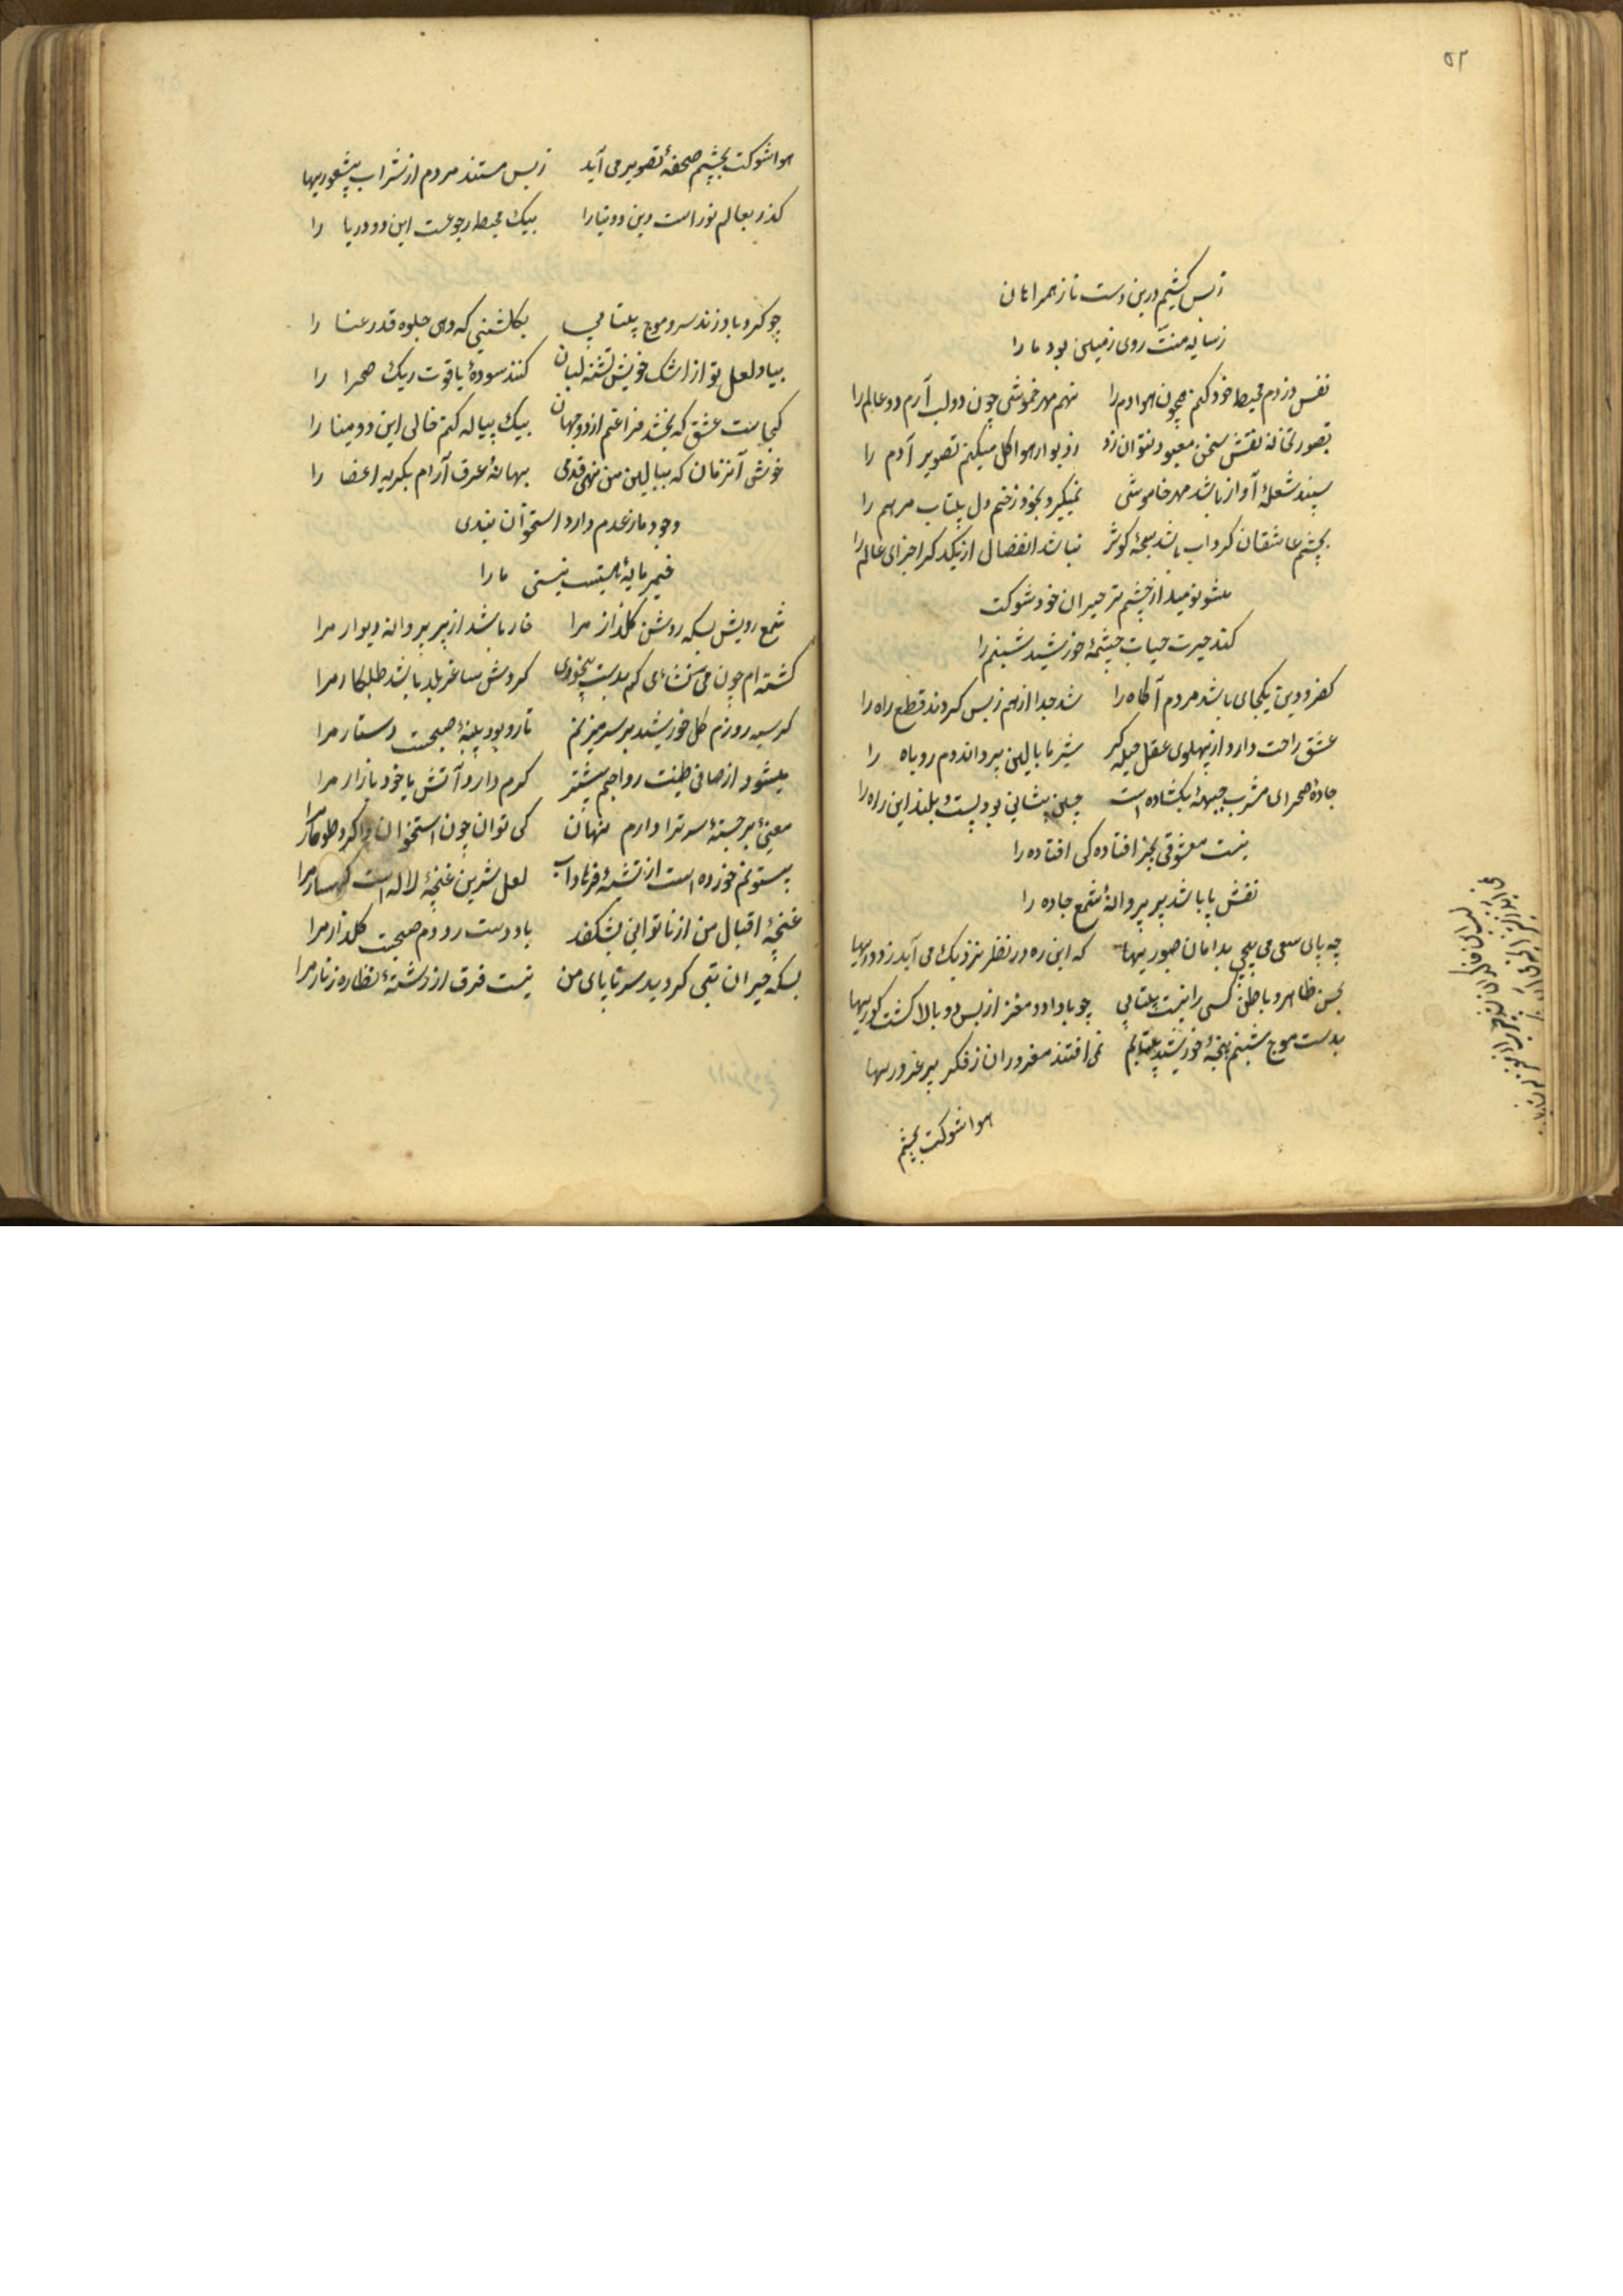 ۵۲
ز بس کشیم درین دست ناز همراهان
ز سایه منت روی زمین بود ما را
نفس دزدم محیط خود کنم همچون هوا دم را نهم مهر خموشی چون دو لب آرم دو عالم را
نقش سخن معیود نتوان زد ز دیوار هوا گل میکنم تصویر آدم را
سپند شعلهٔ آواز باشد مهر خاموشی نمیگیرد بخود زخم دل بیتاب مرهم را
بچشم عاشقان گرداب باشد سبحهٔ کوثر نباشد انفصال از یکدگر اجزای عالم را
مشو نومید از چشم تر حیران خود شوکت
کند حیرت حباب چشمهٔ خورشید شبنم را
کفر و دین یکجای باشد مردم آگاه را شد جدا از هم ز بس کردند قطع راه را
عشق راحت دارد از پهلوی عقل حیله گر شیر ما بالین پر داند دم روباه را
جادهٔ صحرای مشرب جبههٔ بگشاده است چین پیشانی بود پست و بلند این راه را
نیست معشوقی بجز افتادگی افتاده را
نقش پا باشد پر پروانهٔ شمع جاده را
چه پای سعی می پیچی بدامان صبوریها که این ره در نظر نزدیک می آید ز دوریها
بحسن ظاهر و باطن کسی را نیست بیتابی چو بادام دو مغز از بس دو بالا گشت کوریها
بدست موج شبنم پنجهٔ خورشید میتابم نمی افتند مغروران ز فکر پر غروریها
هوا شوکت بچشم
هوا شوکت بچشم صحفهٔ تصویر می آید ز بس مستند مردم از شراب بیشعوریها
گذر بعالم نور است دین و دنیا را بیک محیط رجوعست این دو دریا را
چو گردباد زند سرو موج بیتابی بگلشنی که دهی جلوه قد رعنا را
بیاد لعل تو از اشک خویش تشنه لبان کنند سودهٔ یاقوت ریگ صحرا را
کجاست عشق که بخشد فراغتم از دو جهان بیک پیاله کنم خالی این دو مینا را
خوش آنزمان که ببالین من نهی قدمی بهانهٔ عرق آرام بگریه اعضا را
وجود ما ز عدم دارد استخوان بندی
خمیر مایهٔ هستیست نیستی ما را
شمع رویش بسکه روشن گلذار مرا خار باشد از پر پروانه دیوار مرا
گشته ام چون می ز بدست بیخودی گردش ساغر بلد باشد طلبکار مرا
گر سیه روزم گل خورشید بر سر میزنم تار و پود پنبهٔ صبحست دستار مرا
میشود از صافی طینت رواجم بیشتر گرم دارد آتش یاخود بازار مرا
معنی برجستهٔ سر ترا دارم نهان کی توان چون استخوان وا کرد طومار مرا
بیستونم خورده است از تیشهٔ فرهاد آب لعل شیرین غنچهٔ لاله است کهسار مرا
غنچهٔ اقبال من از ناتوانی بشکفد باد دست رو دم صبحیت گلذار مرا
بسکه حیران بتی گردید سر تا پای من نیست فرق از رشتهٔ نظاره زنار مرا